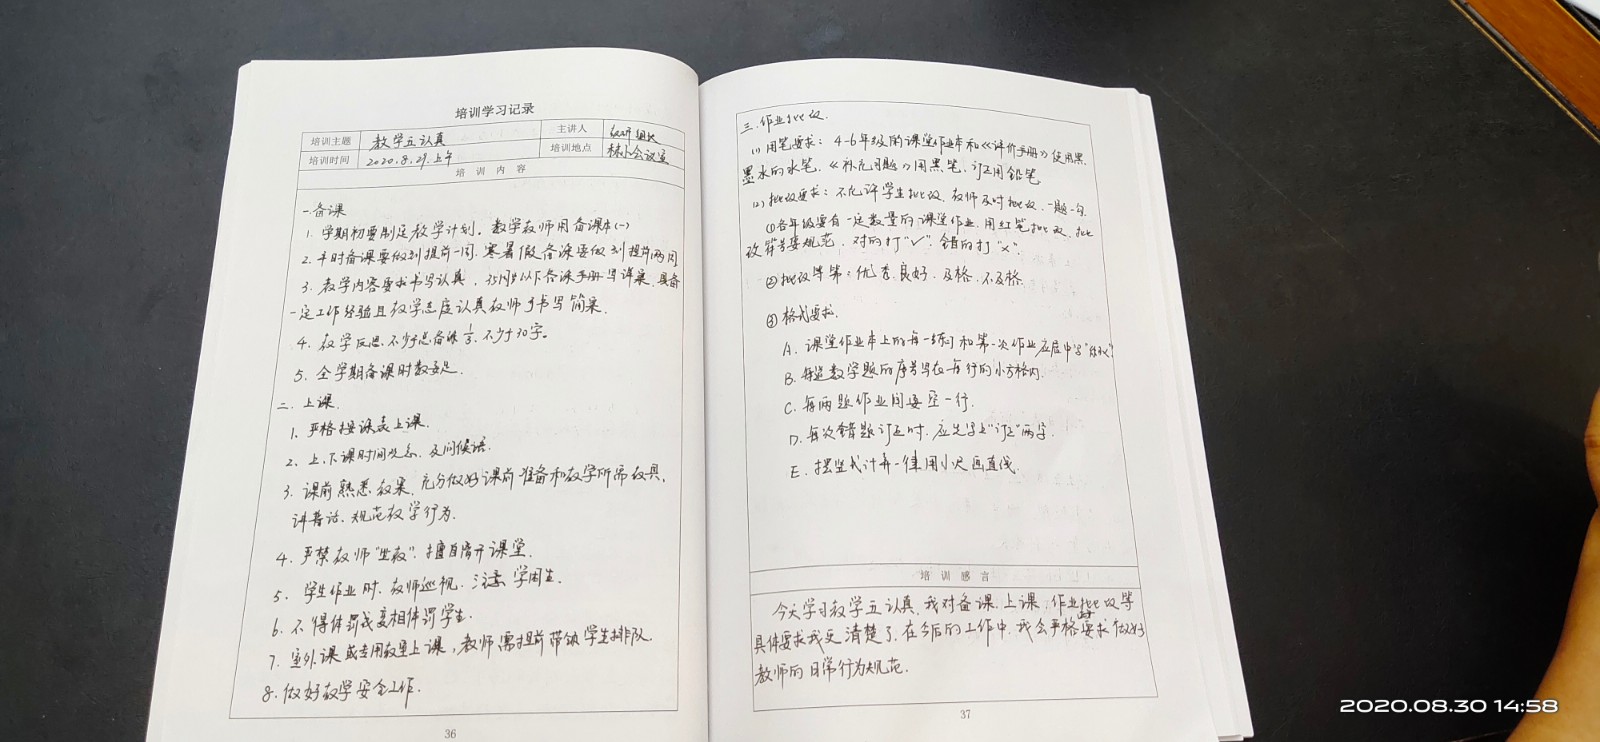 培训学习记录
培训主题 教学五认真 主讲人 教研组长
培训时间 2020.8.29.上午 培训地点 林小会议室
培训内容
一.备课
1. 学期初要制定教学计划。数学教师用备课本(一)
2. 平时备课要做到提前一周.寒暑假备课要做到提前两周
3. 教学内容要求书写认真,35周岁以下备课手册写详案.具备
一定工作经验且教学态度认真教师可书写简案.
4. 教学反思.不少于总备课1/3.不少于30字。
5. 全学期备课时数要足.
二.上课.
1. 严格按课表上课.
2. 上.下课时间观念.及问候语.
3. 课前熟悉教案.充分做好课前准备和教学所需教具,
讲普话.规范教学行为.
4. 严禁教师"坐教".擅自离开课堂.
5. 学生作业时.教师巡视.注意学困生.
6. 不得体罚或变相体罚学生.
7. 室外课或专用教室上课,教师需提前带领学生排队.
8. 做好教学安全工作.
36
三.作业批改.
(1) 用笔要求: 4-6年级的课堂作业本和《评价手册》使用黑
墨水的水笔.《补充习题》用黑笔,订正用铅笔
(2) 批改要求: 不允许学生批改.教师及时批改.一题一勾.
①各年级要有一定数量的课堂作业.用红笔批改.批
改符号要规范,对的打"√".错的打"×".
②批改等第:优秀.良好.及格.不及格.
③ 格式要求.
A. 课堂作业本上的每一练习和第一次作业应居中写
B. 每道数学题的序号写在每行的小方格内.
C. 每两题作业间要空一行.
D. 每次错题订正时.应先写上"订正"两字.
E. 摆竖式计算一律用小尺画直线.
培训感言
今天学习教学五认真.我对备课.上课.作业批改等
具体要求我更清楚了.在今后的工作中.我会严格要求做好
教师的日常行为规范.
37
2020.08.30 14:58